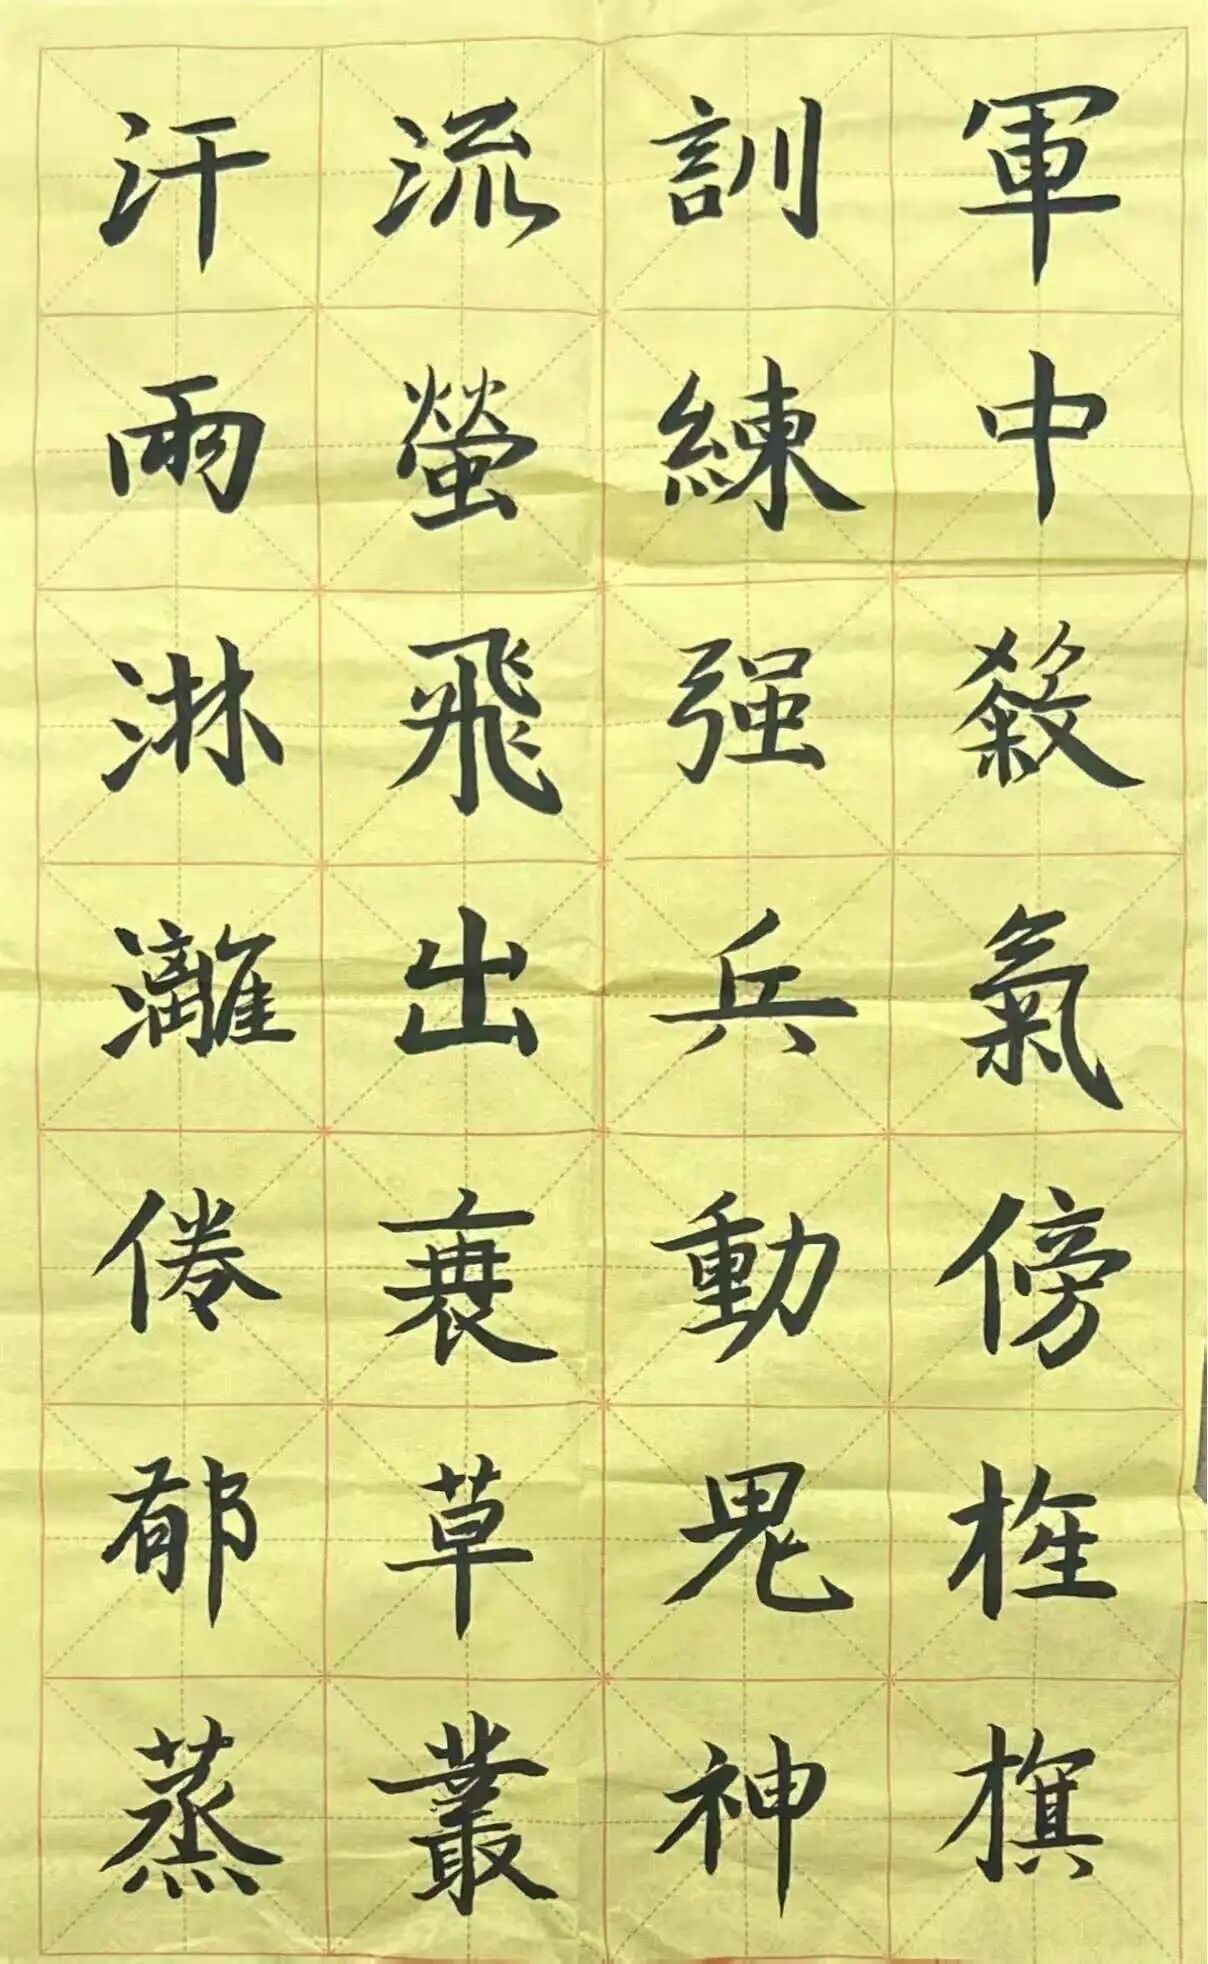 軍中殺氣傍旌旗
訓練强兵動鬼神
流螢飛出衰草叢
汗雨淋灕倦郁蒸